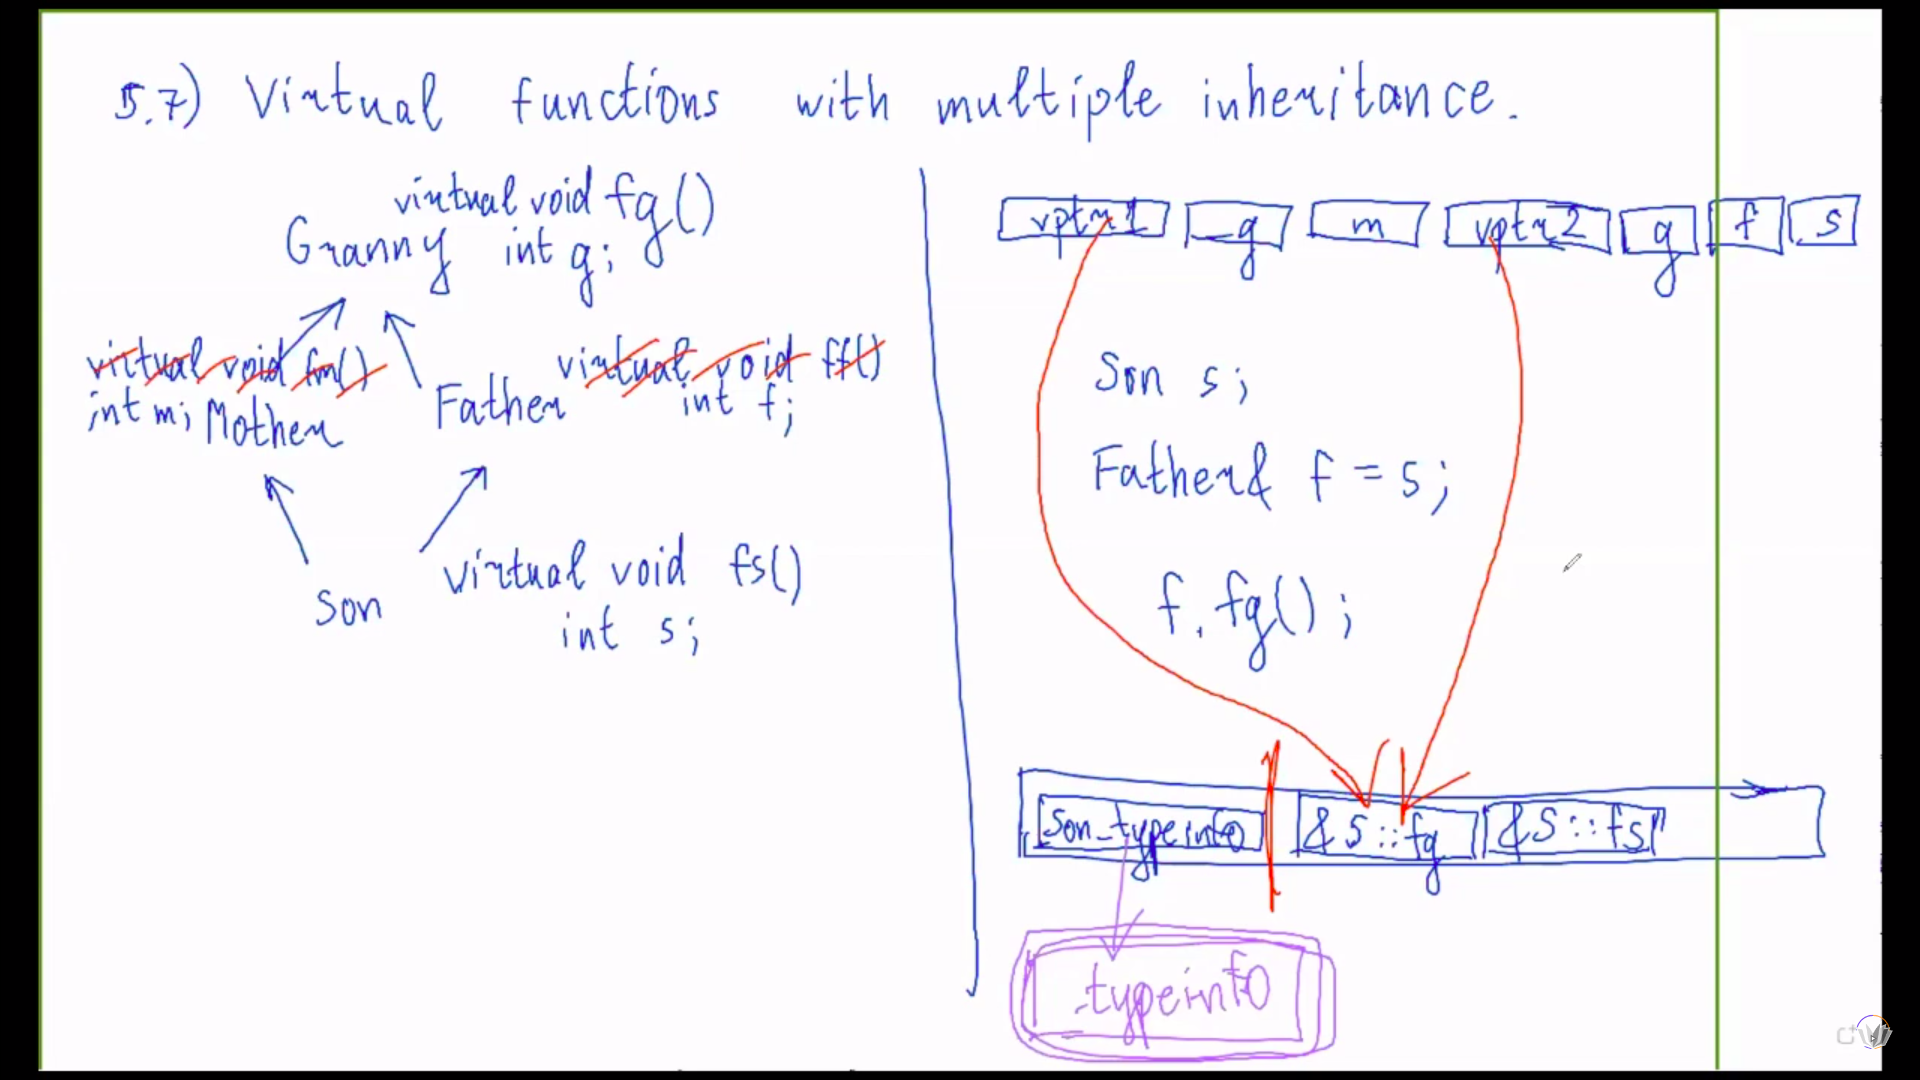 5.7) Virtual functions with multiple inheritance.
virtual void fg()
Granny int g;
virtual void fm()
int m; Mother
virtual void ff()
Father int f;
Son virtual void fs()
int s;
vptr1 g m vptr2 g f s
Son s;
Father& f = s;
f.fg();
Son_typeinfo &S::fg &S::fs
typeinfo